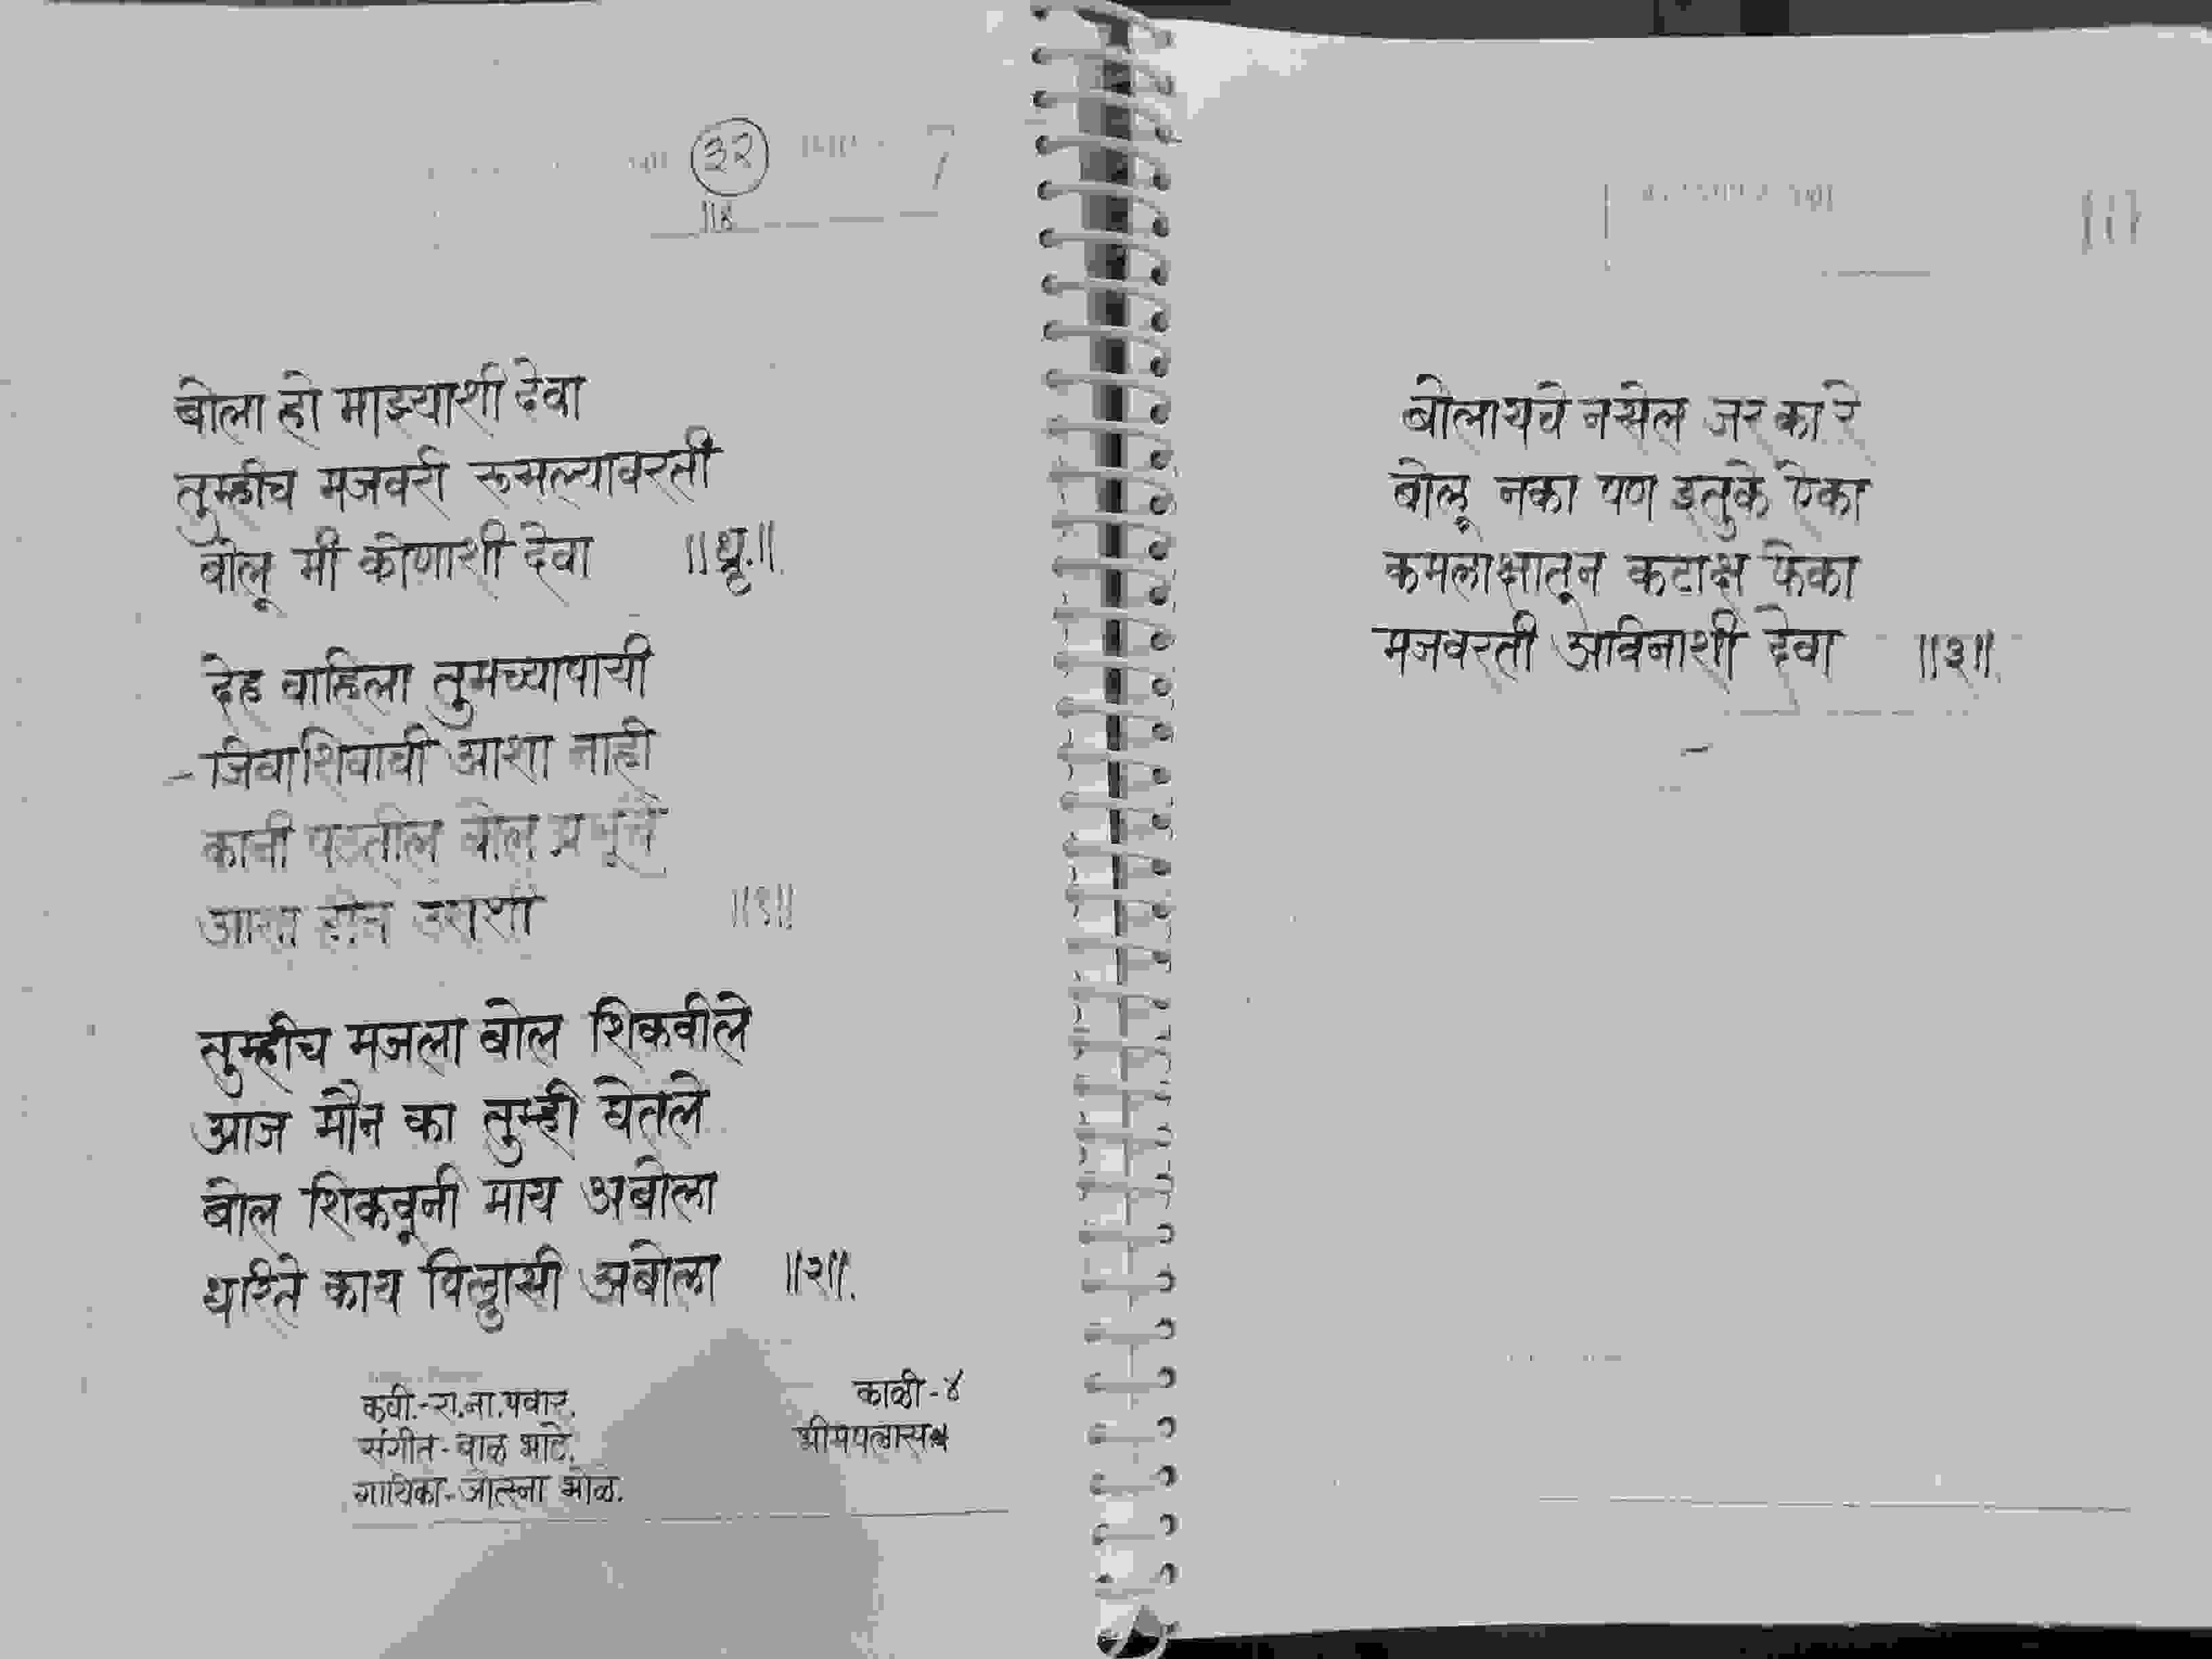 ३२
बोला हो माझ्याशी देवा
तुम्हीच मजवरी रूसल्यावरती
बोलू मी कोणाशी देवा ॥ध्रृ.॥
देह वाहिला तुमच्यापायी
जिवाशिवाची आशा नाही
कानी पडतील बोल प्रभूचे
उराशी ॥१॥
तुम्हीच मजला बोल शिकवीले
आज मौन का तुम्ही घेतले
बोल शिकवूनी माय अबोला
धरिते काय पिलासी अबोला ॥२॥
कवी.-रा.ना.पवार.
संगीत-बाळ भाटे.
गायिका-जोत्स्ना भोळे.
काळी-४
भीमपलास
बोलायचे नसेल जर का रे
बोलू नका पण इतुके ऐका
कमलाक्षातून कटाक्ष फेका
मजवरती अविनाशी देवा ॥३॥